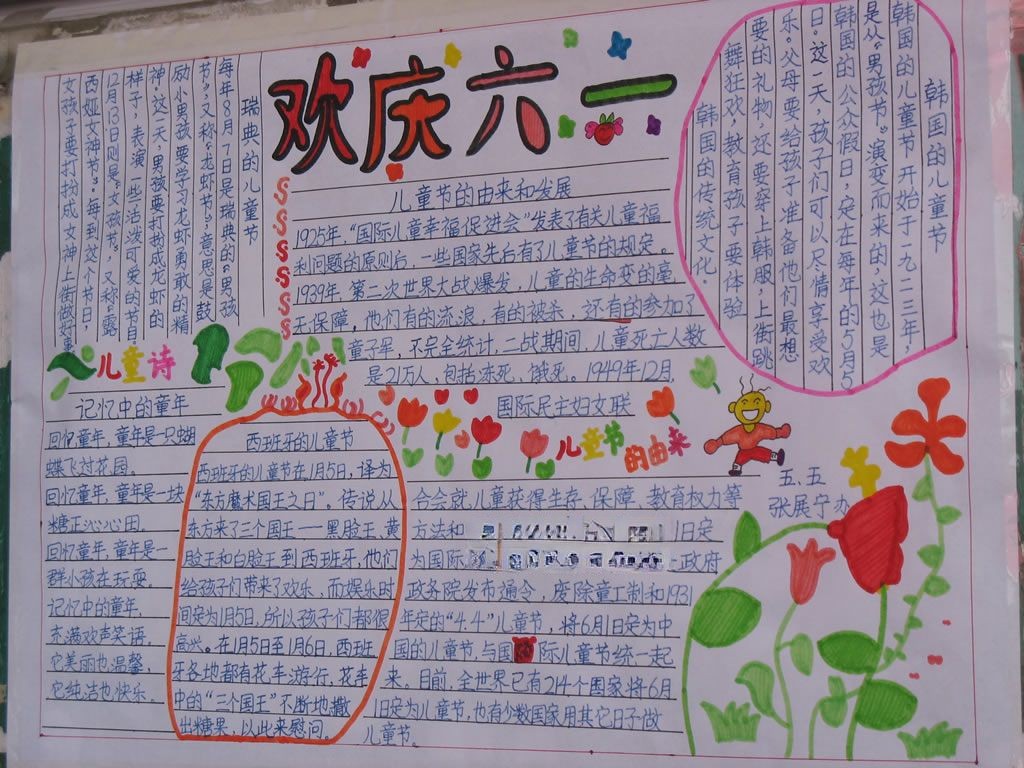 欢庆六一
韩国的儿童节
韩国的儿童节开始于一九二三年,
是从“男孩节”演变而来的,这也是
韩国的公众假日,定在每年的5月5
日。这一天,孩子们可以尽情享受欢
乐,父母要给孩子准备他们最想
要的礼物,还要穿上韩服,上街跳
舞狂欢,教育孩子要体验
韩国的传统文化.
瑞典的儿童节
每年8月7日是瑞典的“男孩
节”,又称“龙虾节”,意思是鼓
励小男孩要学习龙虾勇敢的精
神,这一天,男孩要打扮成龙虾的
样子,表演一些活泼可爱的节目.
12月13日则是“女孩节”,又称“露
西娅女神节”,每到这个节日,
女孩子要打扮成女神上街做好事
儿童节的由来和发展
1925年,“国际儿童幸福促进会”发表了有关儿童福
利问题的原则后,一些国家先后有了儿童节的规定。
1939年,第二次世界大战爆发,儿童的生命变的毫
无保障。他们有的流浪,有的被杀,还有的参加了
童子军,不完全统计,二战期间,儿童死亡人数
是21万人,包括冻死、饿死。1949年12月,
国际民主妇女联
儿童节的由来
合会就儿童获得生存、保障、教育权力等
方法和
1日定
为国际
政府
政务院发布通令,废除童工制和1931
年定的“4.4”儿童节,将6月1日定为中
国的儿童节,与国际儿童节统一起
来,目前,全世界已有214个国家将6月
1日定为儿童节,也有少数国家用其它日子做
儿童节。
儿童诗
记忆中的童年
回忆童年,童年是一只蝴
蝶飞过花园。
回忆童年,童年是一块
糖正沁心田。
回忆童年,童年是一
群小孩在玩耍。
记忆中的童年,
充满欢声笑语,
它美丽也温馨,
它纯洁也快乐。
西班牙的儿童节
西班牙的儿童节在1月5日,译为
“东方魔术国王之日”。传说从
东方来了三个国王——黑脸王、黄
脸王和白脸王到西班牙,他们
给孩子们带来了欢乐,而娱乐时
间定为1月5日,所以孩子们都很
高兴。在1月5日至1月6日,西班
牙各地都有花车游行,花车
中的“三个国王”不断地撒
出糖果,以此来慰问。
五.五
张展宁办